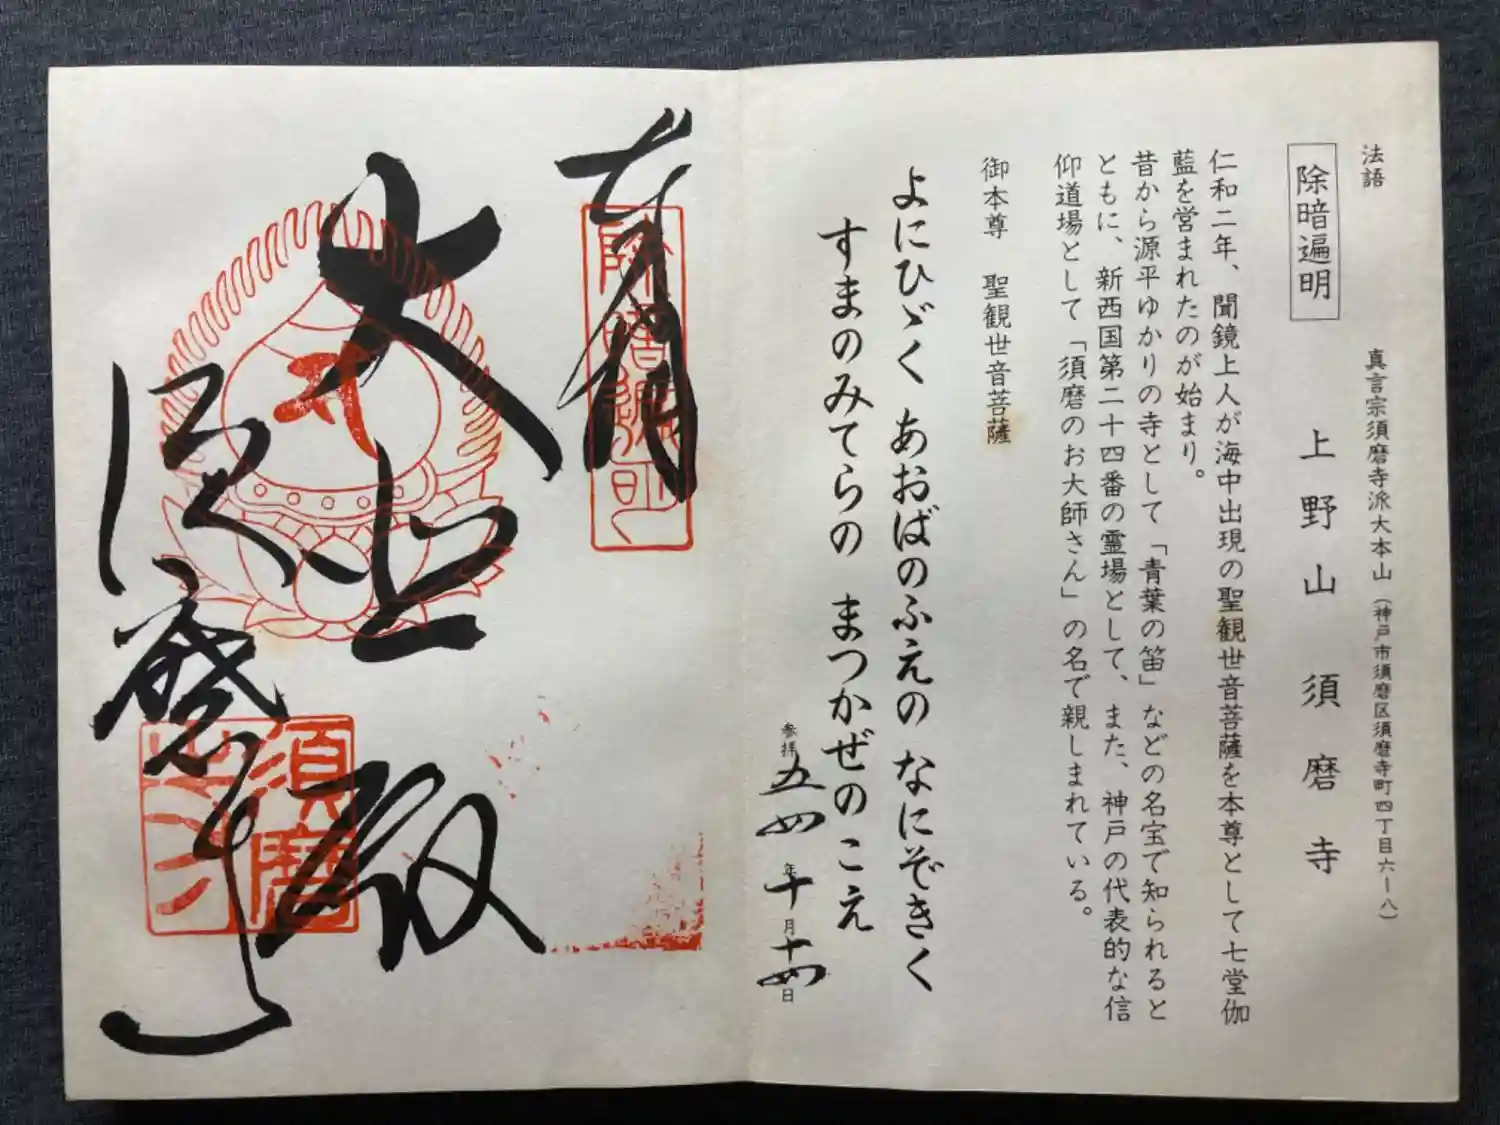 法語
真言宗須磨寺派大本山（神戸市須磨区須磨寺町四丁目六ー八）
除暗遍明
上野山須磨寺
仁和二年、聞鏡上人が海中出現の聖観世音菩薩を本尊として七堂伽
藍を営まれたのが始まり。
昔から源平ゆかりの寺として「青葉の笛」などの名宝で知られると
ともに、新西国第二十四番の霊場として、また、神戸の代表的な信
仰道場として「須磨のお大師さん」の名で親しまれている。
御本尊　聖観世音菩薩
よにひゞく　あおばのふえの　なにぞきく
すまのみてらの　まつかぜのこえ
参拝五四年十月十四日
奉拝
除暗遍明
大上殿
須磨寺
須磨